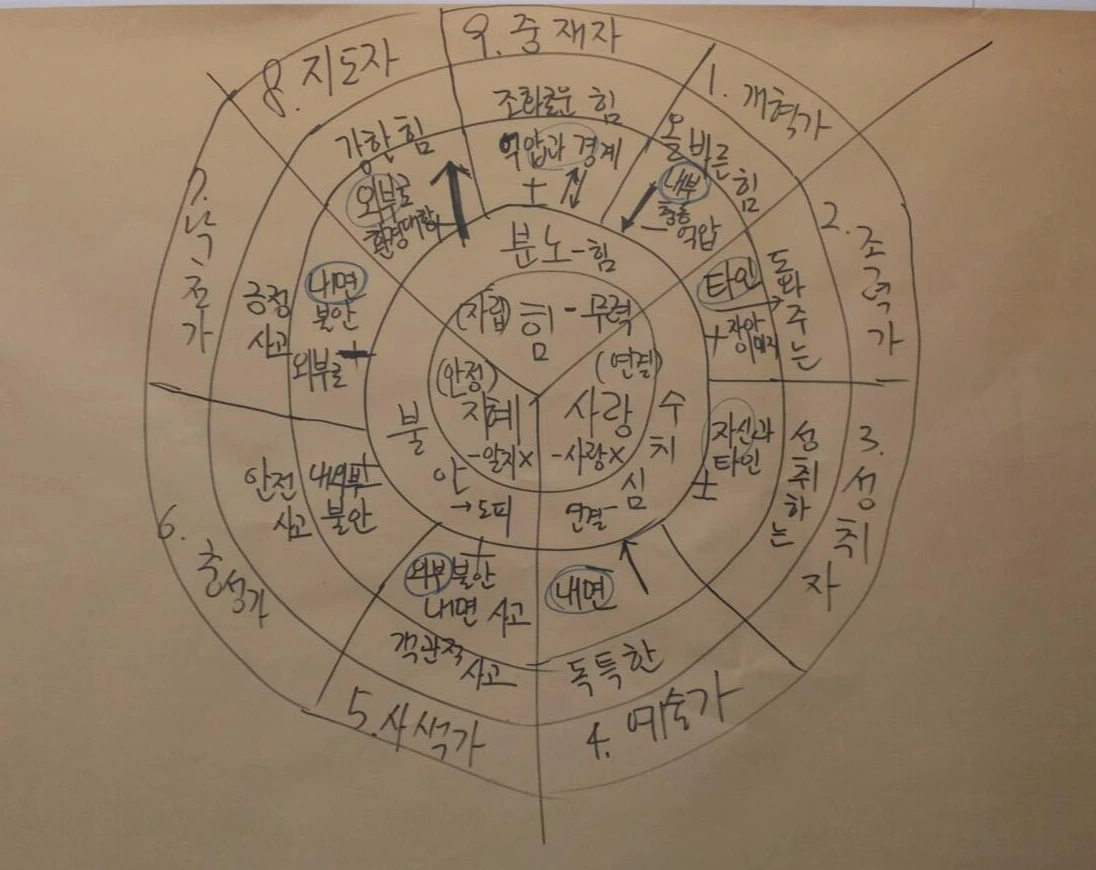 9. 중재자
조화로운 힘
억압과 경계
+
1. 개혁가
올바른 힘
내부
억압
2. 조력가
도와주는
타인
+
3. 성취자
성취하는
자신과
타인
±
4. 예술가
독특한
내면
5. 사색가
객관적
사고
+
외부 불안
내면 사고
6. 충성가
안전
사고
내외부
불안
7. 낙천가
긍정
사고
내면
불안
외부로 +
8. 지도자
강한 힘
외부로
환경대항
분노-힘
(자립) 힘 - 무력
(안정)
지혜
-알지x
(연결)
사랑
-사랑x
불안
→도피
수치심
연결